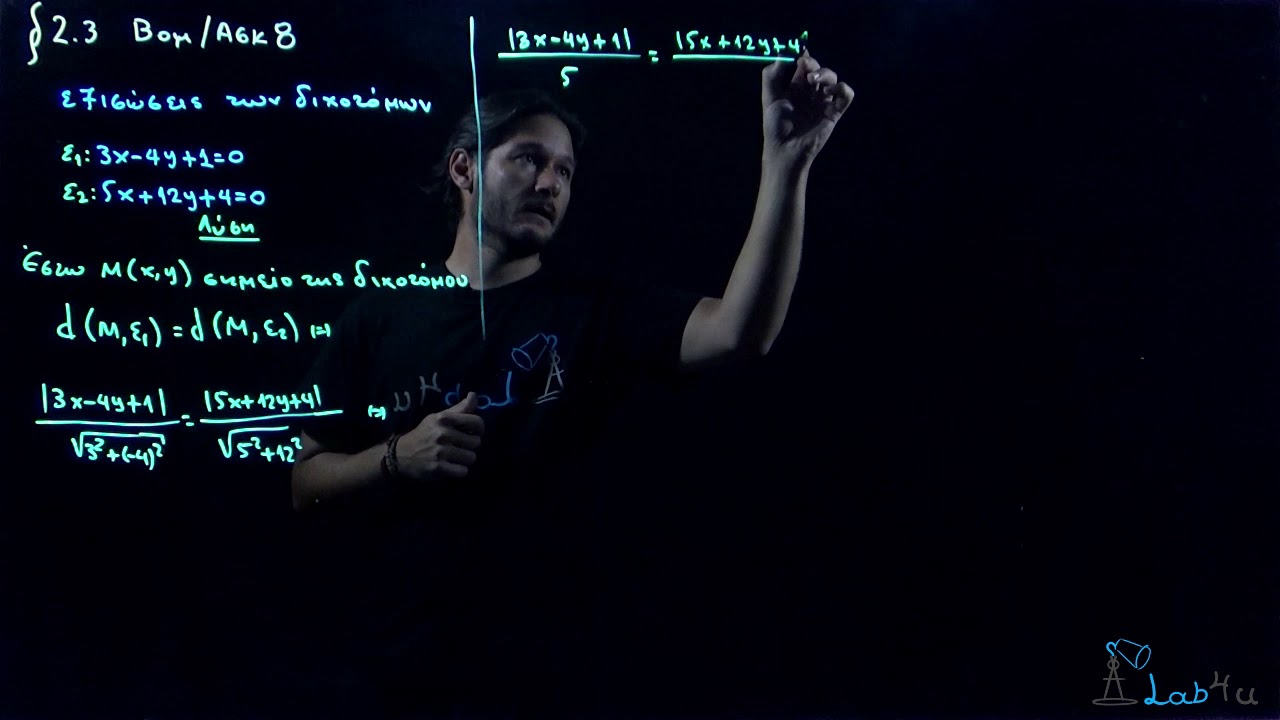 § 2.3 Βομ/Ασκ 8
εξισώσεις των διχοτόμων
ε₁: 3x-4y+1=0
ε₂: 5x+12y+4=0
Λύση
Έστω Μ(x,y) σημείο της διχοτόμου
d(M,ε₁) = d(M,ε₂) ⇔
|3x-4y+1| / √3²+(-4)² = |5x+12y+4| / √5²+12² ⇔
|3x-4y+1| / 5 = |5x+12y+4
Lab4u